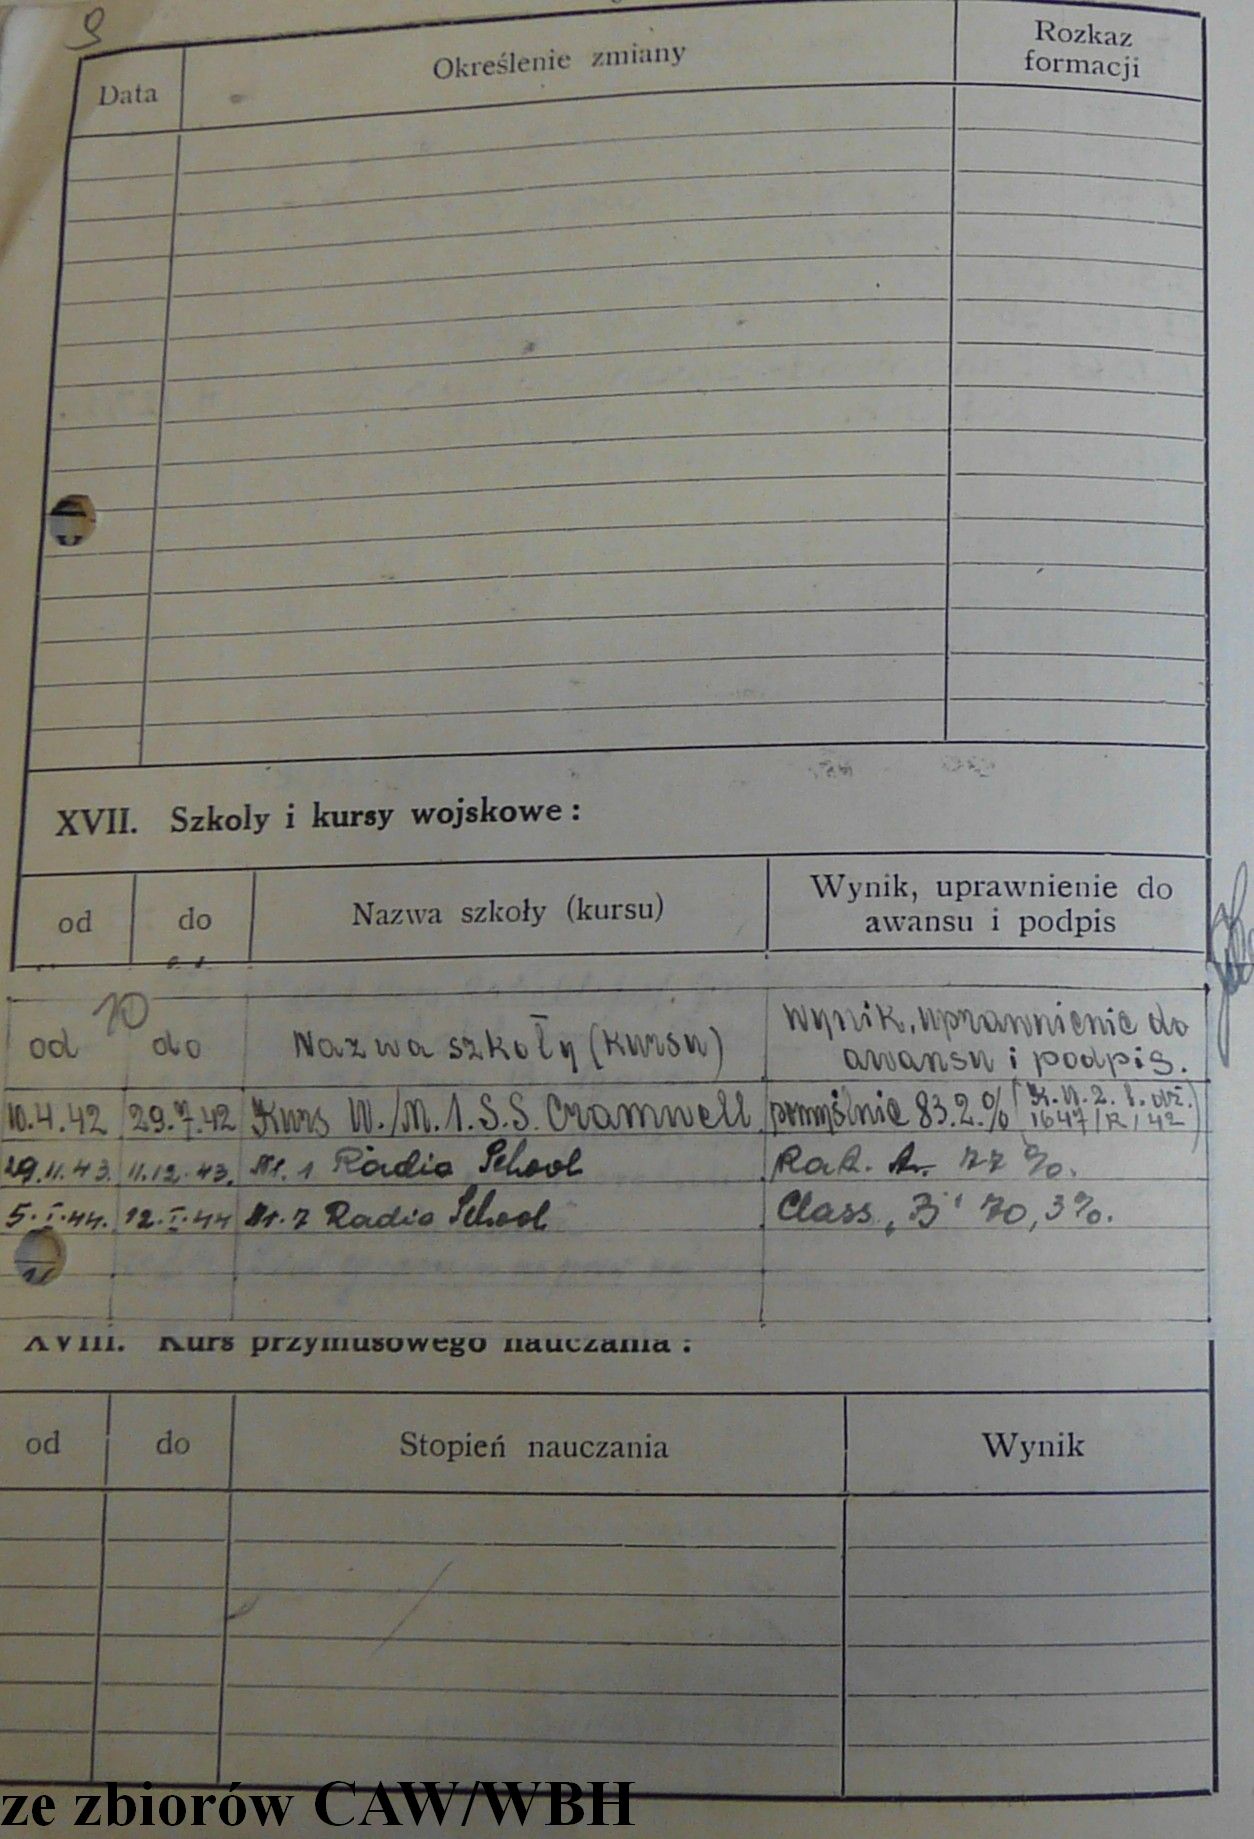 9
Data Określenie zmiany Rozkaz formacji
XVII. Szkoly i kursy wojskowe :
od do Nazwa szkoły (kursu) Wynik, uprawnienie do
awansu i podpis
10
od do Nazwa szkoły (kursu) Wynik, uprawnienie do
awansu i podpis.
10.4.42 29.7.42 Kurs W./M. 1.S.S. Cramwell pomyślnie 83.2.%
1647/R/42
29.11.43. 11.12.43. Nr. 1 Radio School 77 %.
5.I.44. 12.I.44 Nr. 7 Radio School Class „B" 70,3%.
XVIII. Kurs przymusowego nauczania :
od do Stopień nauczania Wynik
ze zbiorów CAW/WBH